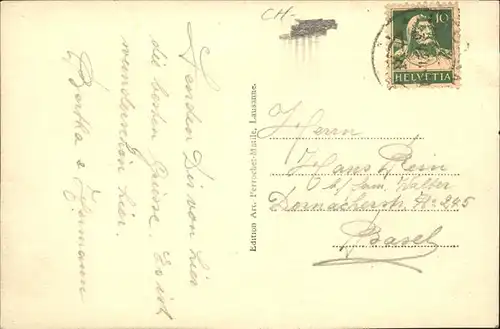 CH-
Senden Dir von hier
die besten Grüsse. Es ist
wunderschön hier.
Bertha &
Edition Art. Perrochet-Matile, Lausanne.
10
HELVETIA
Herrn
Hans Rein
b/ Fam. Walter
Dornacherstr. No 245
Basel